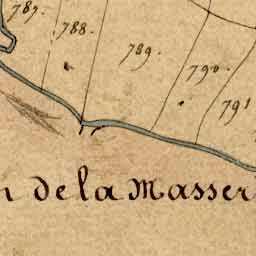 787.
788.
789.
790.
791
n de la Masser